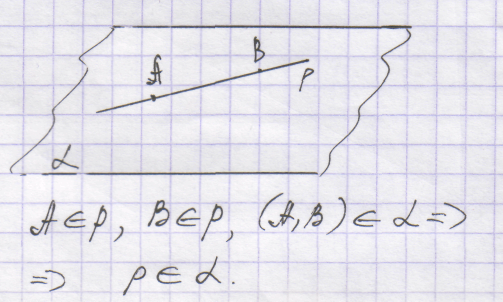 A
B
p
α
A ∈ p, B ∈ p, (A, B) ∈ α =>
=> p ∈ α.